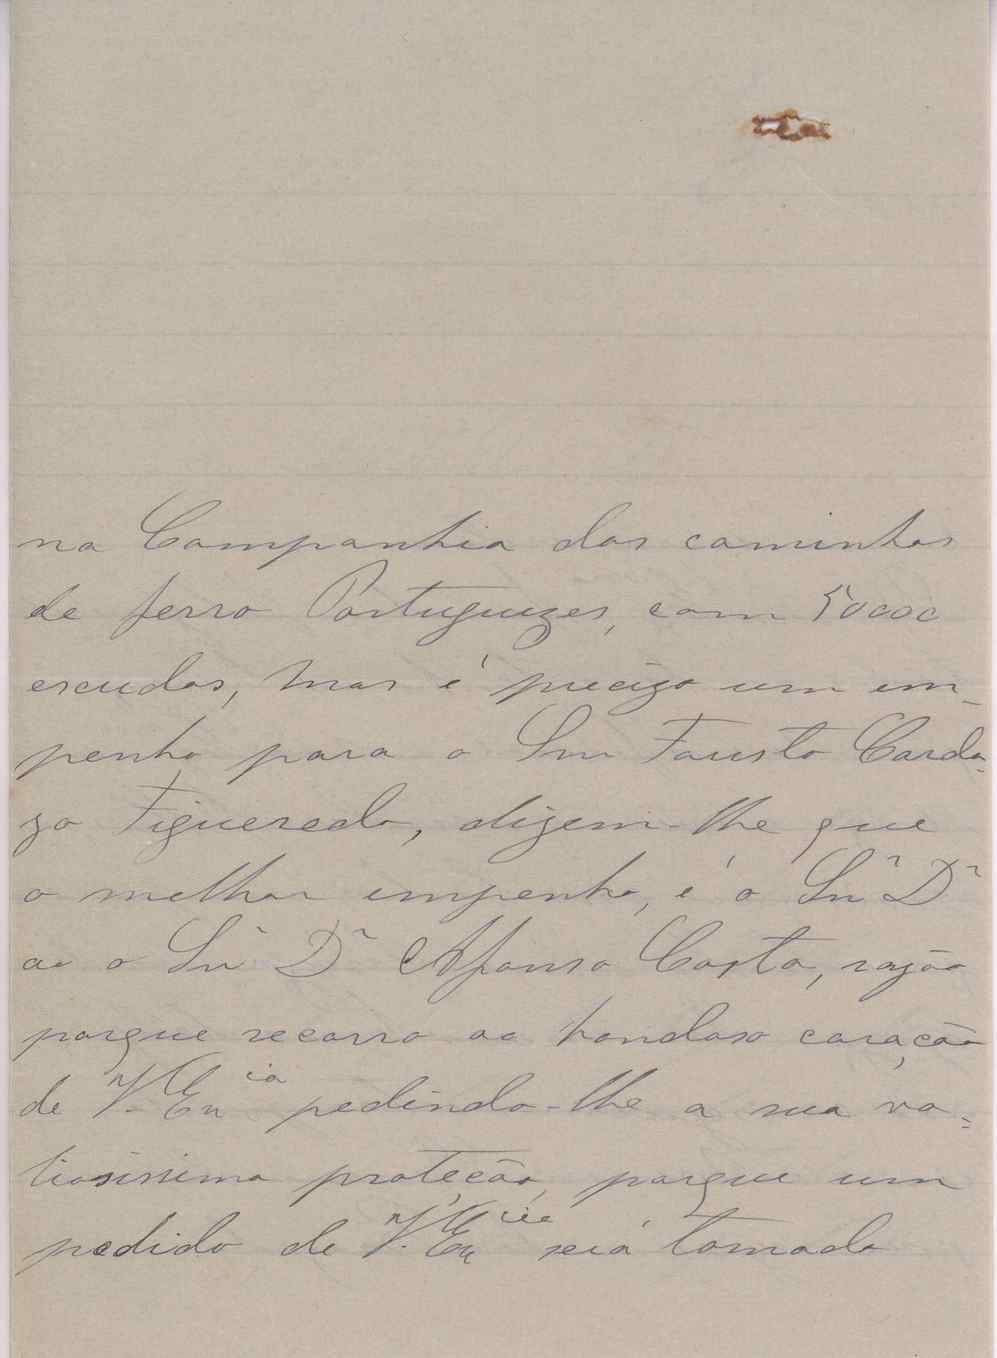 na Companhia dos caminhos
de ferro Portuguezes, com 50000
escudos, mas é precizo um em-
penho para o Snr Fausto Cardo-
zo Figueredo, dizem-lhe que
o melhor empenho, é o Snr Dr
ao o Snr Dr Afonso Costa, razão
porque recorro ao bondoso coração
de V. Exa cia pedindo-lhe a sua va-
liosissima proteção, porque um
pedido de V. Ex cia será tomado